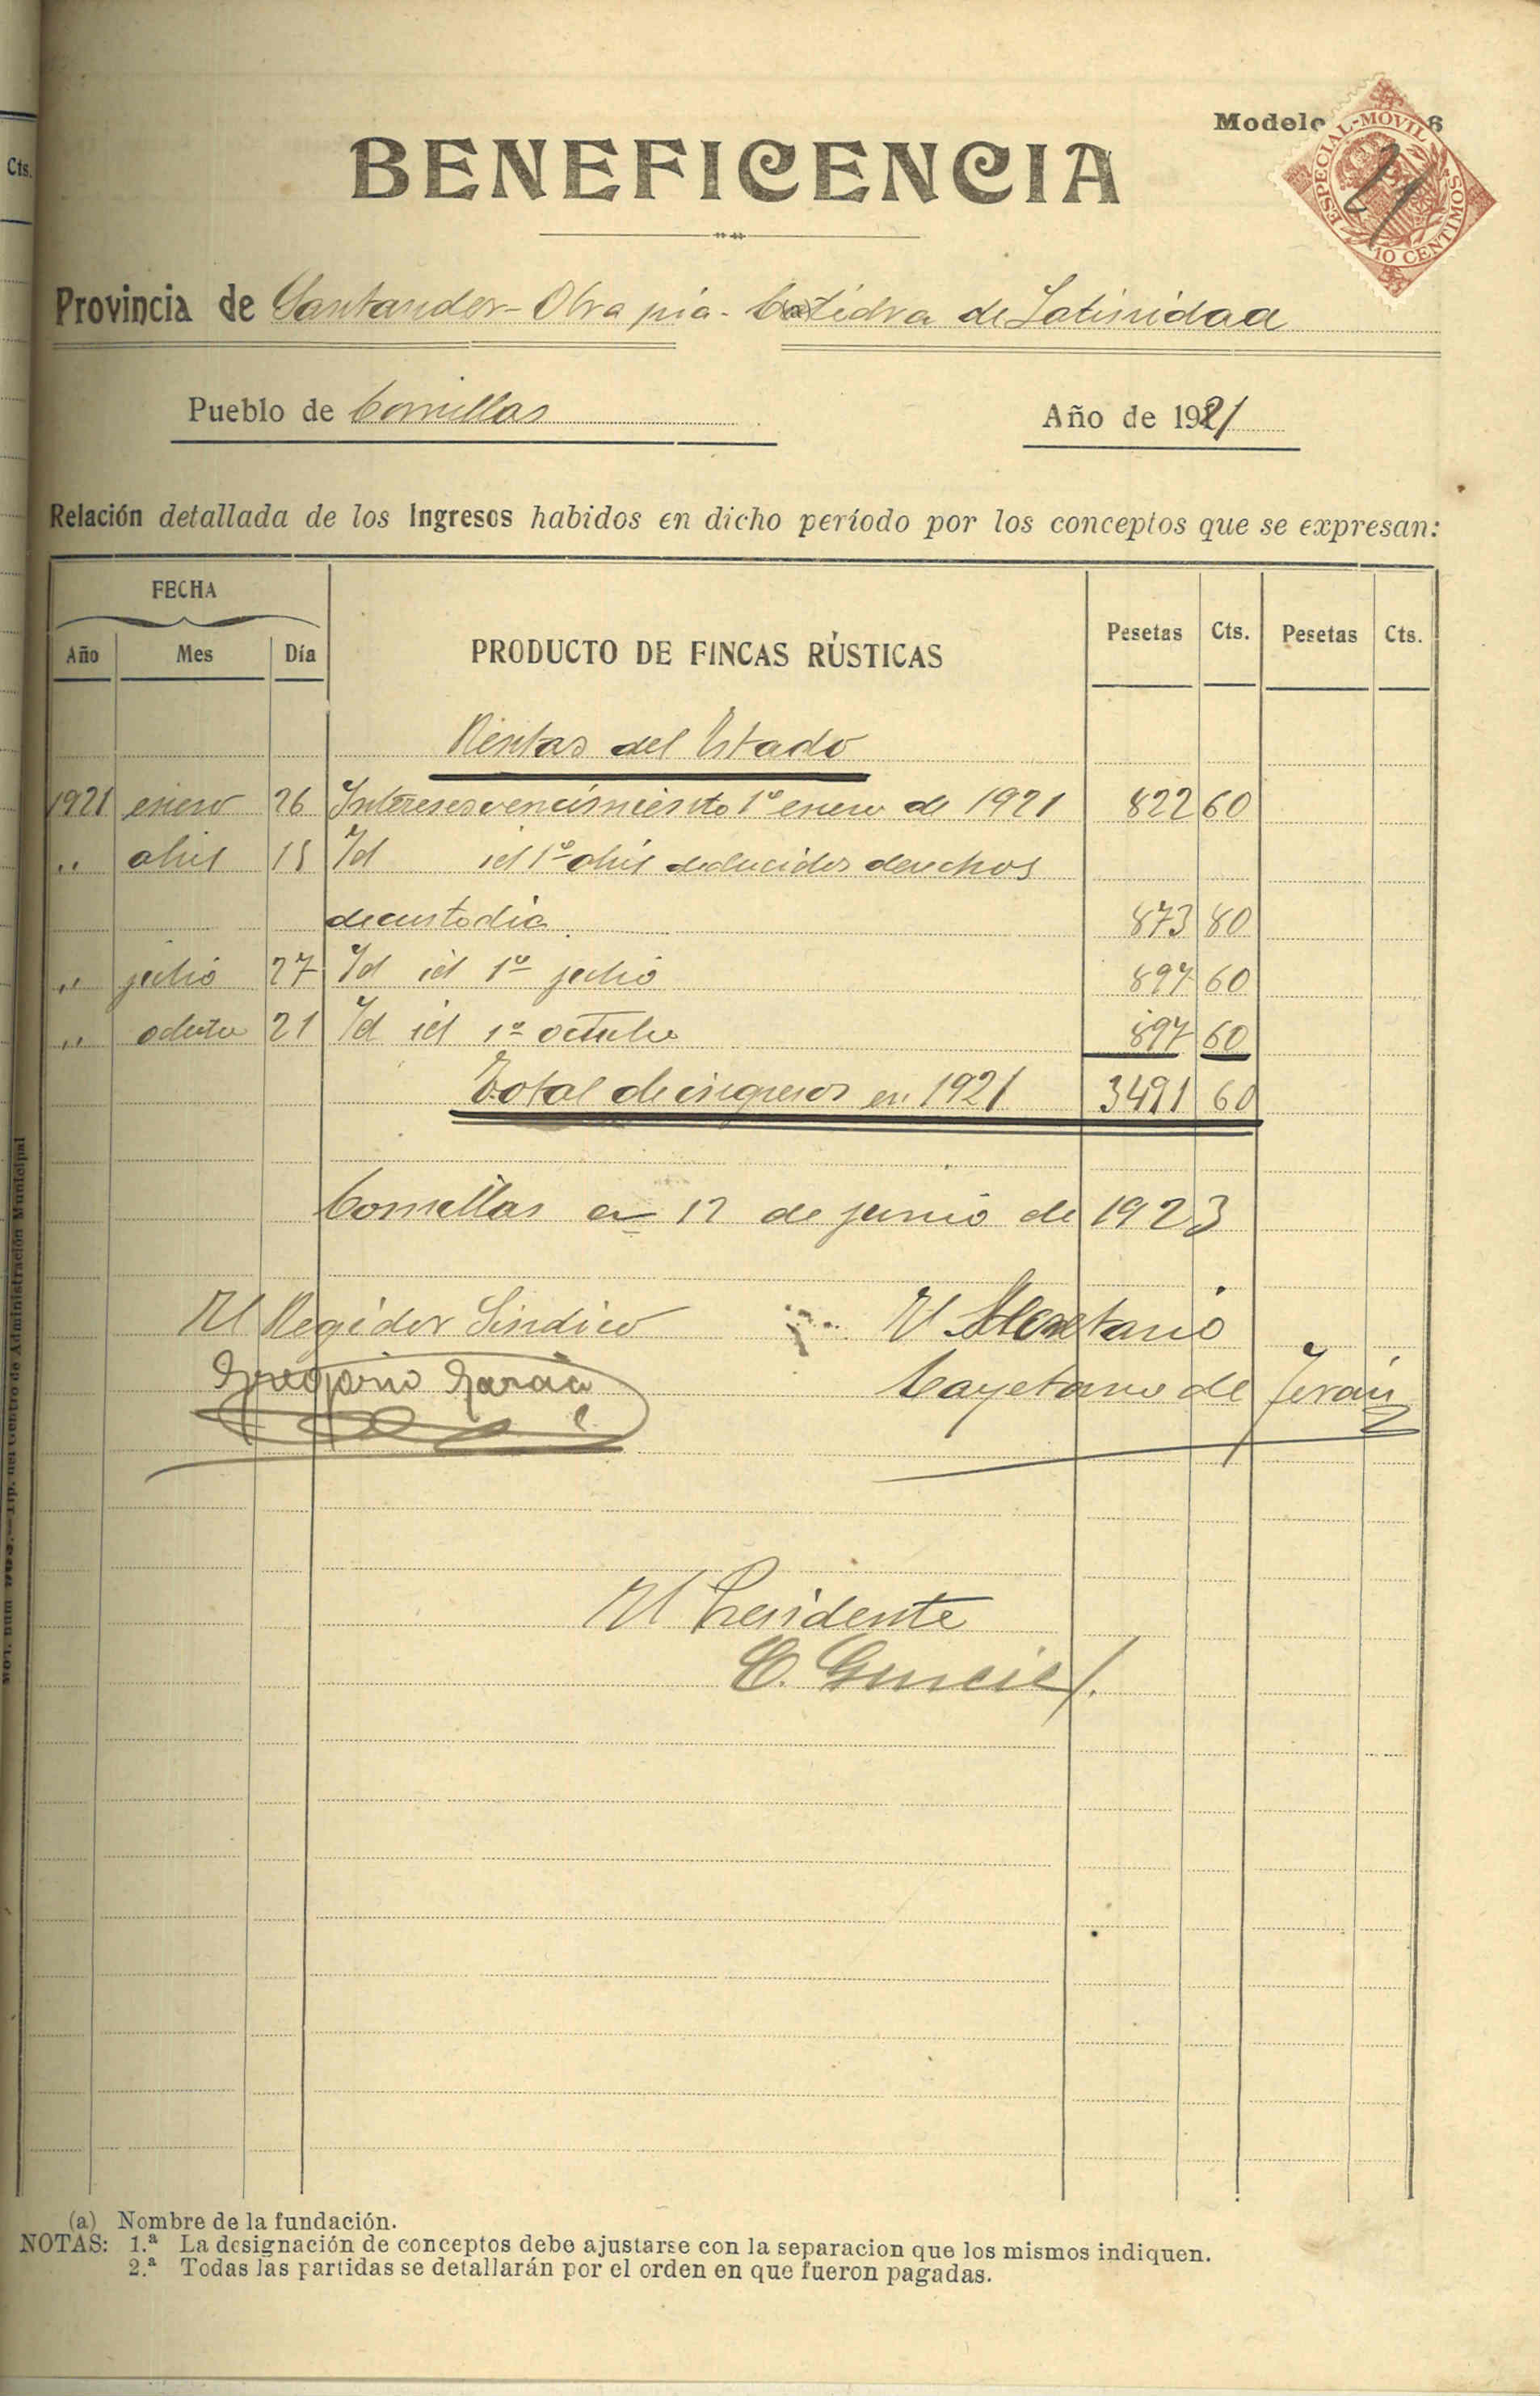 Cts.
Modelo 6
ESPECIAL-MOVIL
10 CENTIMOS
21
BENEFICENCIA
Provincia de Santander - Obra pia - Catedra de Latinidad
Pueblo de Comillas Año de 1921
Relación detallada de los Ingresos habidos en dicho período por los conceptos que se expresan:
FECHA
Año Mes Día PRODUCTO DE FINCAS RÚSTICAS Pesetas Cts. Pesetas Cts.
Rentas del Estado
1921 enero 26 Intereses vencimiento 1º enero de 1921 822 60
" abril 15 Id id 1º abril deducidos derechos
de custodia 873 80
" julio 27 Id id 1º julio 897 60
" octubre 21 Id id 1º octubre 897 60
Total de ingresos en 1921 3491 60
Comillas a 12 de junio de 1923
El Regidor Sindico El Secretario
Gregorio Garcia Cayetano de Teran
El Presidente
(a) Nombre de la fundación.
NOTAS: 1.ª La designación de conceptos debe ajustarse con la separacion que los mismos indiquen.
2.ª Todas las partidas se detallarán por el orden en que fueron pagadas.